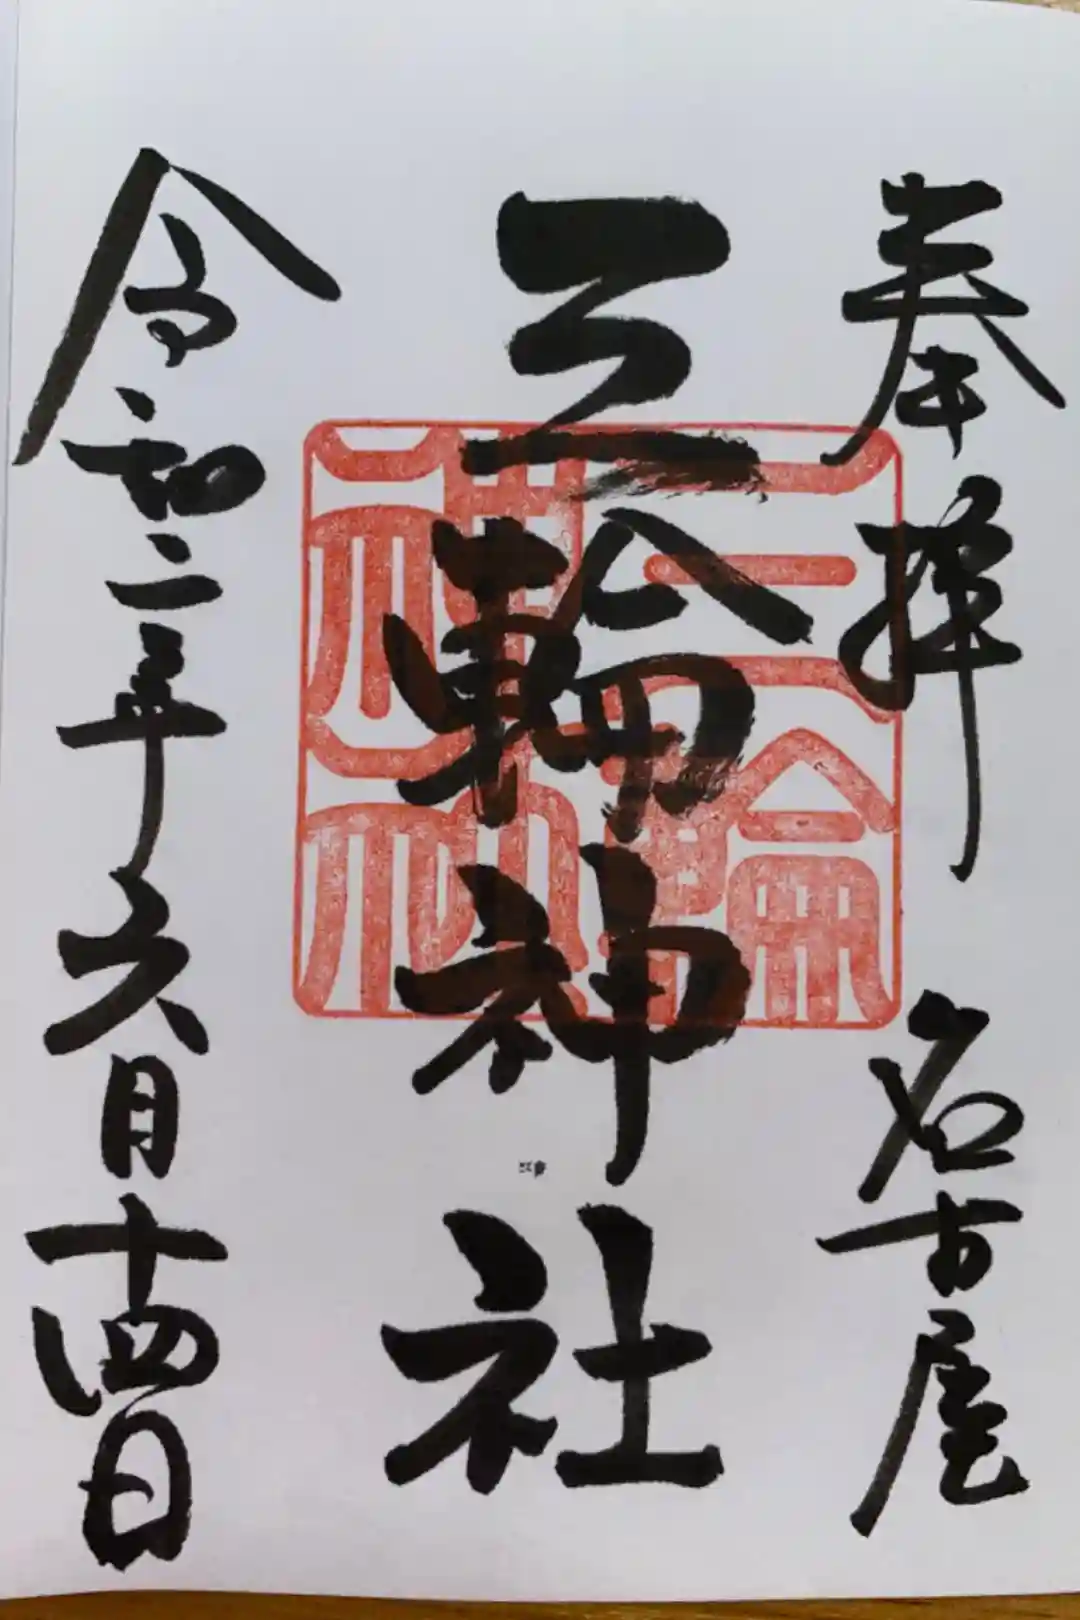 奉拝 名古屋
三輪神社
令和二年六月十四日
三輪
神社